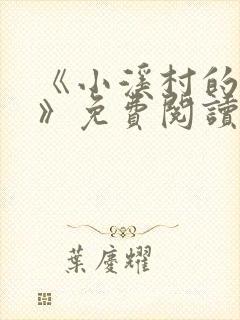 《小溪村的
》免費閱讀
葉慶耀